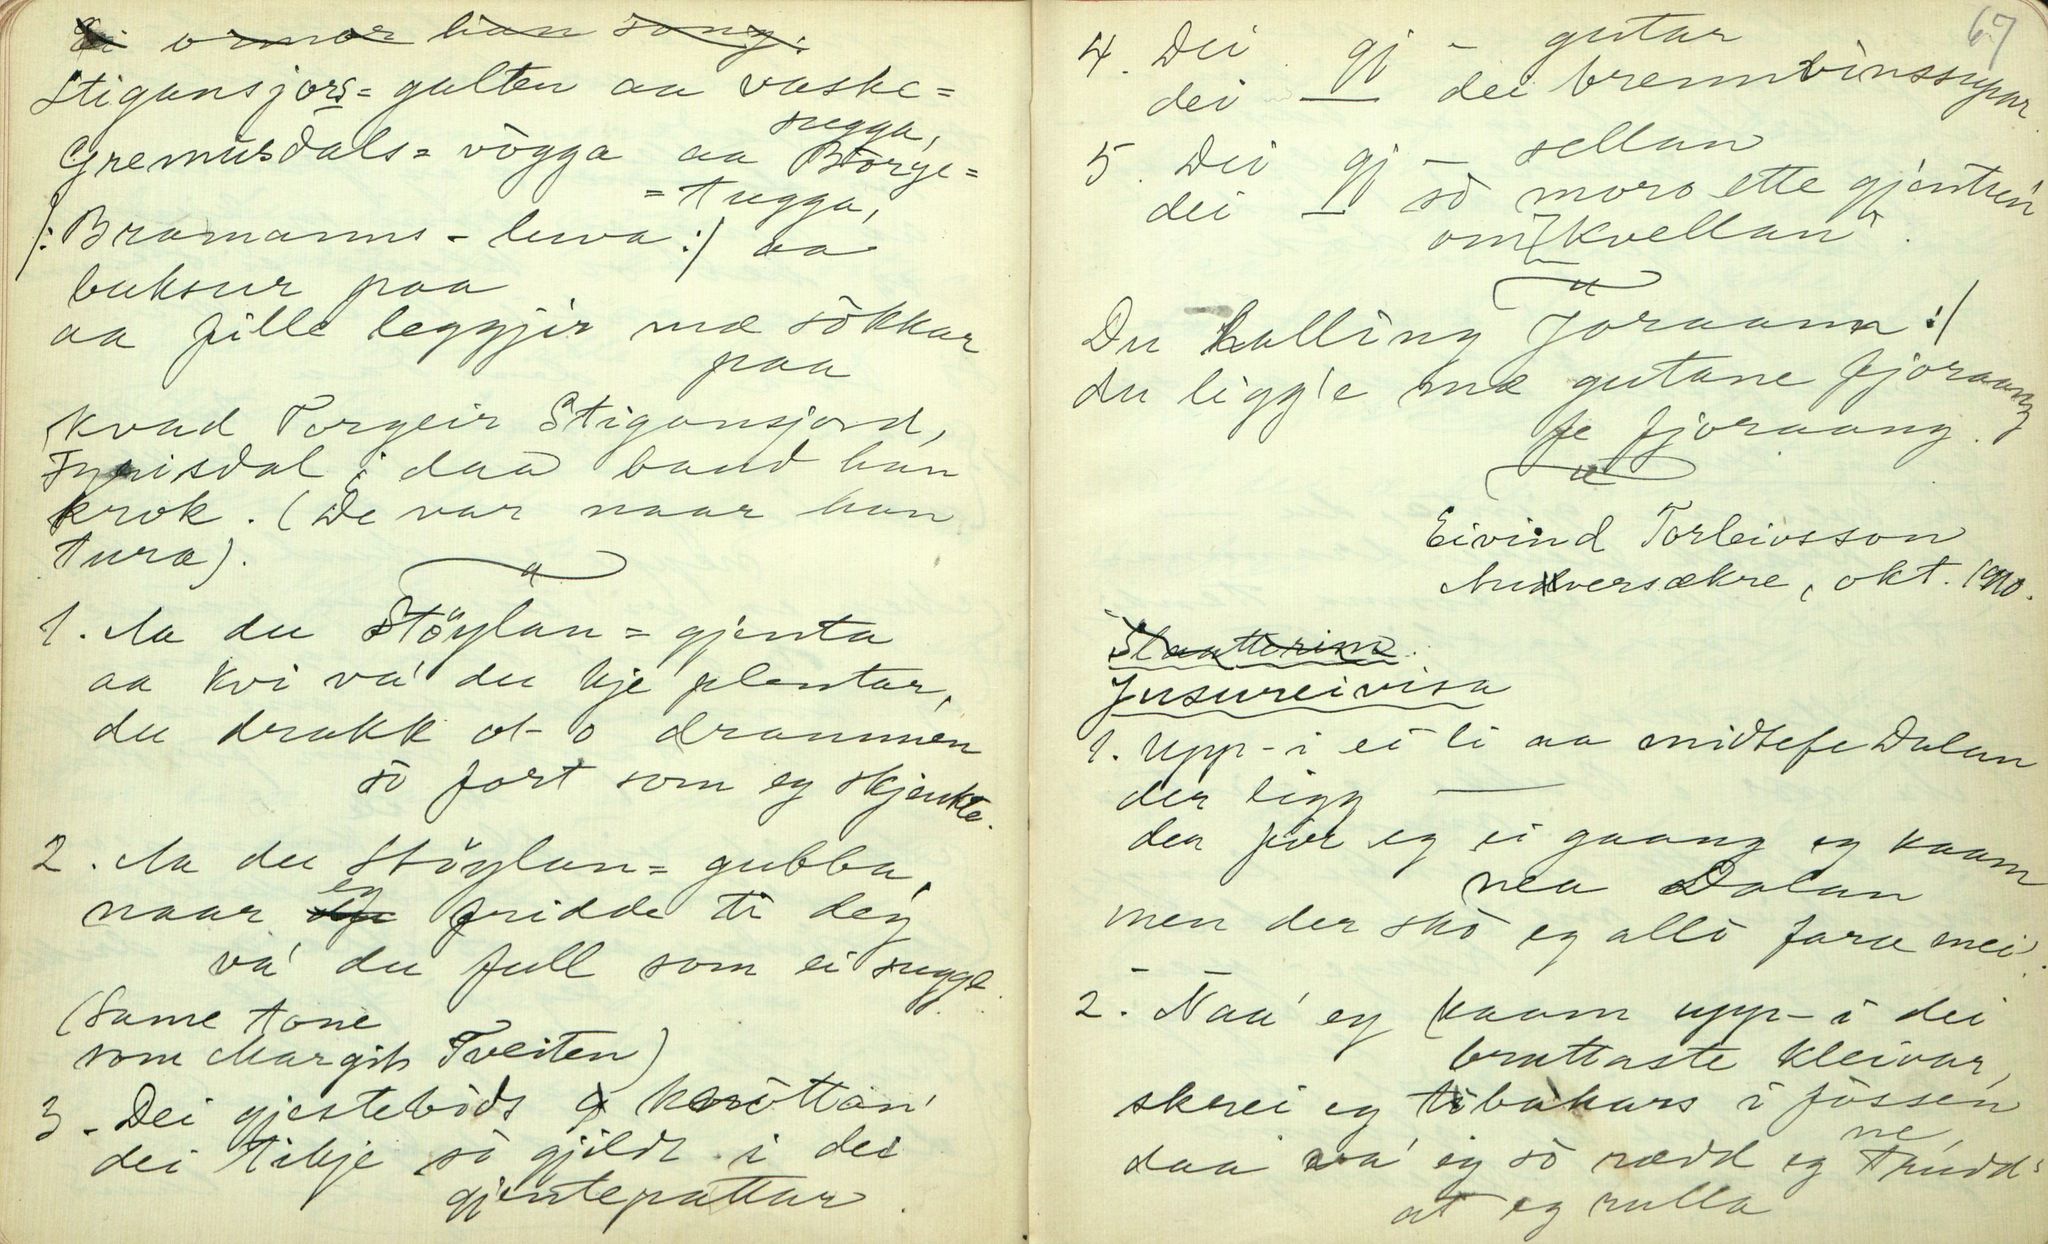 ormar han song.
Stigansjors= galten aa vaske=
sugga,
Gremusdals= vògga aa Borge=
= tugga,
/: Bramanns - luva :/ aa
buksur paa
aa fille leggjir mæ sòkkar
paa
Kvad Torgeir Stigansjord,
Fyrisdal; daa baud han
krok. (De var naar han
tura).
1. Aa du Stöylan= gjenta
aa kvi va' du kje plentar,
du drakk ot o drammen
sò fort som eg skjenkte.
2. Aa du Stöylan= gubba,
naar eg fridde ti deg
va' du full som ei sugge.
(Same tone
som Margit Tveiten)
3. Dei gjestebòds kròttan'
dei tikje sò gjildt i dei
gjentepattar.
67
4. Dei gj – gutar
dei — dei brennvinssupar.
5. Dei gj – sellan
dei — sò moro ette gjentun
om kvellan.
Du Halling Joraann :/
du ligg'e mæ gutane fjoraang
fe fjoraang.
Eivind Torleivsson
Austversækre, okt. 1910.
Slaatterim.
Jusureivisa
1. Upp-i ei li aa midtefe Dalan
der ligg —
der fór eg ei gaang eg kaam
nea Dalan
men der skò eg allò fara mei.
2. Naa' eg kaam upp-i dei
brattaste kleivar,
skrei eg tibakars i fòssen
daa va' eg sò rædd eg
ne
trudd'
at eg rulla